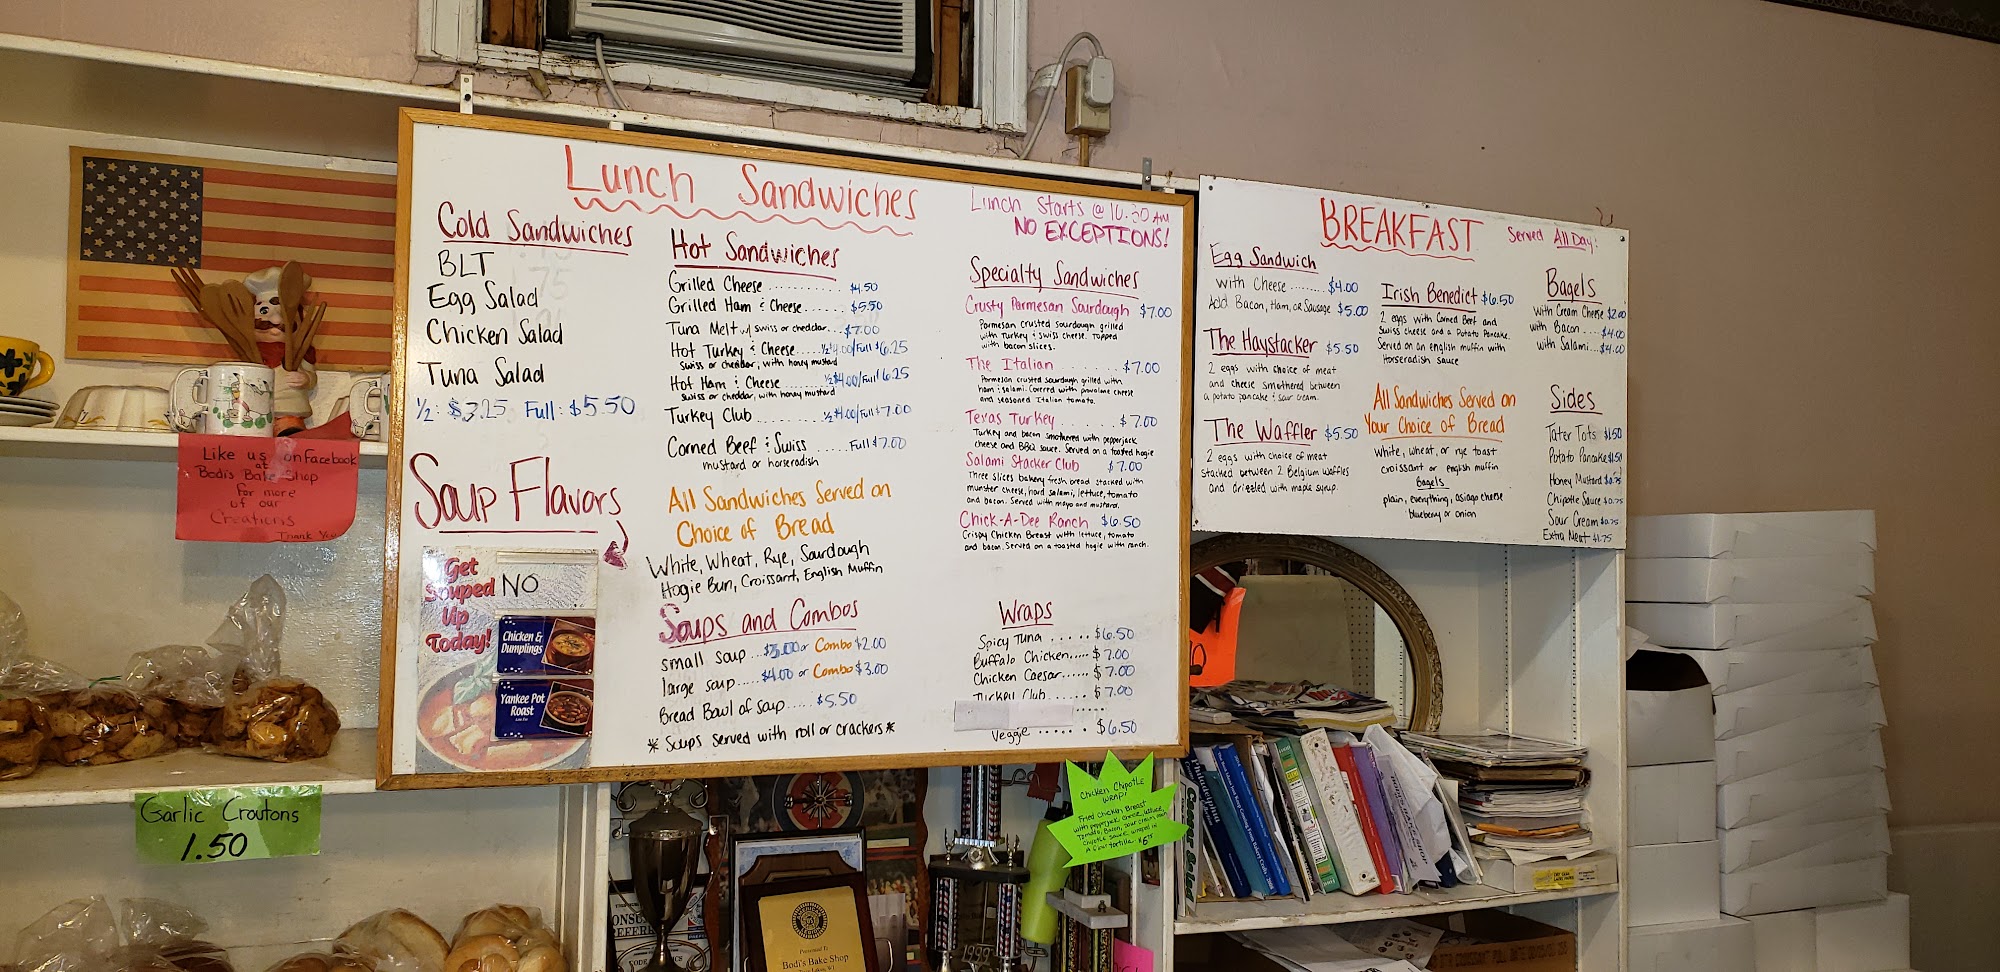 Lunch Sandwiches
Lunch Starts @ 10:30 AM
NO EXCEPTIONS!
Cold Sandwiches
BLT
Egg Salad
Chicken Salad
Tuna Salad
½: $3.25 Full: $5.50
Soup Flavors
Get
Souped
Up
Today!
NO
Chicken &
Dumplings
Yankee Pot
Roast
Hot Sandwiches
Grilled Cheese ............ $4.50
Grilled Ham & Cheese ...... $5.50
Tuna Melt w/ swiss or cheddar... $7.00
Hot Turkey & Cheese.... ½ $4.00/Full $6.25
Swiss or cheddar, with honey mustard
Hot Ham & Cheese ...... ½ $4.00/Full $6.25
Swiss or cheddar, with honey mustard
Turkey Club ............ ½ $4.00/Full $7.00
Corned Beef & Swiss ...... Full $7.00
mustard or horseradish
All Sandwiches Served on
Choice of Bread
White, Wheat, Rye, Sourdough
Hogie Bun, Croissant, English Muffin
Soups and Combos
small soup ... $3.00 or Combo $2.00
large soup ..... $4.00 or Combo $3.00
Bread Bowl of soup ..... $5.50
* Soups served with roll or crackers *
Specialty Sandwiches
Crusty Parmesan Sourdough $7.00
Parmesan crusted sourdough grilled
with Turkey & Swiss cheese. Topped
with bacon slices.
The Italian .......... $7.00
Parmesan crusted sourdough grilled with
ham & salami. Covered with provalone cheese
and seasoned Italian tomato.
Texas Turkey ......... $7.00
Turkey and bacon smothered with pepperjack
cheese and BBQ sauce. Served on a toasted hogie
Salami Stacker Club $7.00
Three slices bakery fresh bread stacked with
munster cheese, hard salami, lettuce, tomato
and bacon. Served with mayo and mustard.
Chick-A-Dee Ranch $6.50
Crispy Chicken Breast with lettuce, tomato
and bacon. Served on a toasted hogie with ranch.
Wraps
Spicy Tuna ..... $6.50
Buffalo Chicken..... $7.00
Chicken Caesar...... $7.00
Turkey Club ...... $7.00
Veggie ...... $6.50
BREAKFAST
Served All Day!
Egg Sandwich
with Cheese ........ $4.00
Add Bacon, Ham, or Sausage $5.00
The Haystacker $5.50
2 eggs with choice of meat
and cheese smothered between
a potato pancake & sour cream.
The Waffler $5.50
2 eggs with choice of meat
stacked between 2 Belgium Waffles
and drizzled with maple syrup.
Irish Benedict $6.50
2 eggs with Corned Beef and
Swiss cheese and a Potato Pancake.
Served on an english muffin with
Horseradish sauce
All Sandwiches Served on
Your Choice of Bread
White, wheat, or rye toast
croissant or english muffin
Bagels
plain, everything, asiago cheese
blueberry or onion
Bagels
with Cream Cheese $2.00
with Bacon .... $4.00
with Salami... $4.00
Sides
Tater Tots $1.50
Potato Pancake $1.50
Honey Mustard $0.75
Chipotle Sauce $0.75
Sour Cream $0.75
Extra Meat $1.75
Like us on Facebook
at
Bodi's Bake Shop
for more
of our
Creations
Thank You
Garlic Croutons
1.50
Chicken Chipotle
Wrap!
Fried Chicken Breast
with pepperjack cheese, lettuce,
Tomato, Bacon, sour cream and
chipotle sauce wrapped in
Presented To
Bodi's Bake Shop
1999